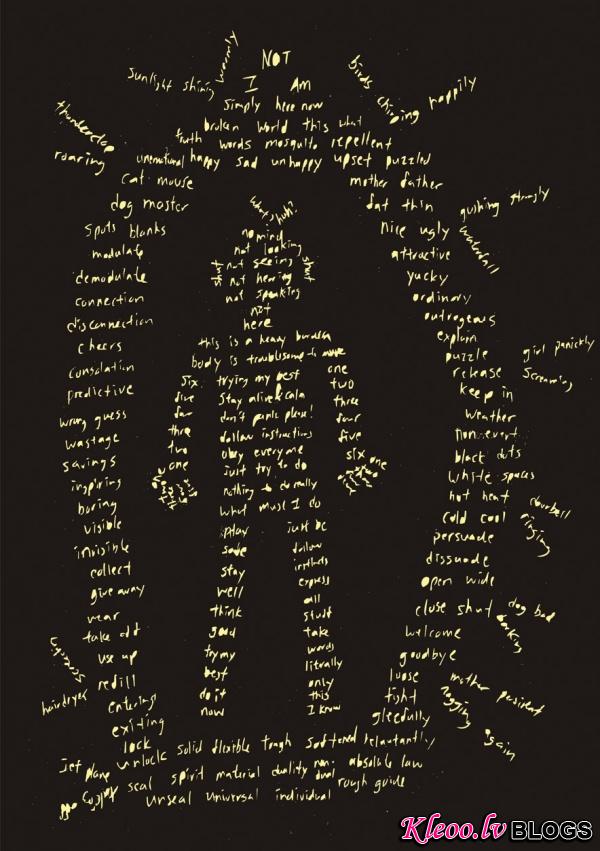 NOT
I Am
Simply here now
broken world this what
truth words mosquito repellent
unenatural happy sad unhappy upset puzzled
sunlight shining warmly
birds chirping happily
thunderclap
roaring
cat mouse
dog master
spots blanks
modulate
demodulate
connection
disconnection
cheers
consolation
predictive
wrong guess
wastage
savings
inspiring
boring
visible
invisible
collect
give away
wear
take off
use up
refill
entering
exiting
lock
unlock
mother father
fat thin
nice ugly
attractive
yucky
ordinary
outrageous
explain
puzzle
release
keep in
weather
nonevent
black dots
white spaces
hot heat
cold cool
persuade
dissuade
open wide
close shut
welcome
goodbye
loose
tight
gleefully
gushing strongly
waterfall
girl panickly
screaming
doorbell
ringing
dog bad
barking
mother persistent
nagging
again
hairdryer
what's huh?
no mind
not looking
shut not seeing shut
not hearing
not speaking
not
here
this is a heavy burden
body is troublesome to move
six trying my best one
five stay alive two
four don't panic please! three
three follow instructions four
two obey everyone five
one just try to do six one
nothing to do really
what must I do
play just be
safe follow
stay instincts
well express
think all
good stuff
try my take
best words
do it litrally
now only
this
I know
solid flexible tough softened reluctantly
spirit material duality non-dual absolute law
seal rough guide
unseal universal individual
jet plane
Kleoo.lv BLOGS